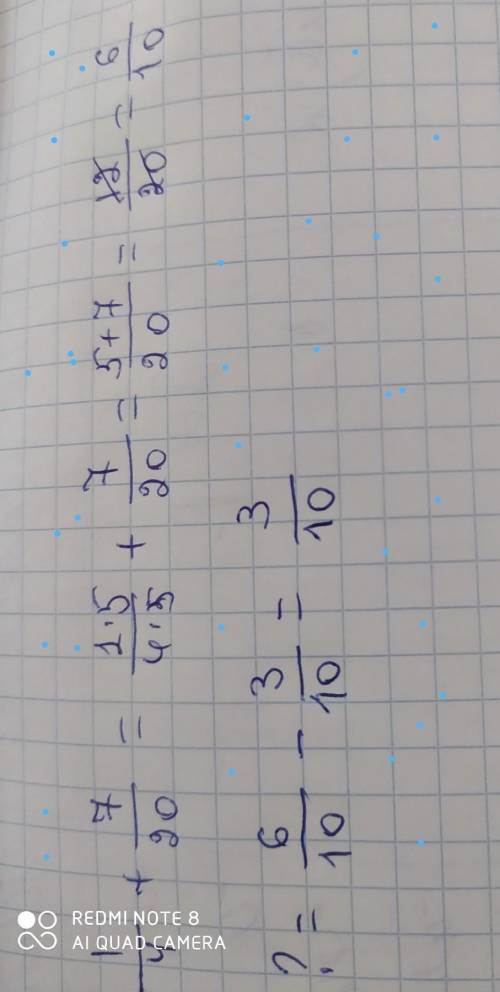 1/4 + 7/20 = 1·5/4·5 + 7/20 = 5+7/20 = 12/20 = 6/10
? = 6/10 - 3/10 = 3/10
REDMI NOTE 8
AI QUAD CAMERA